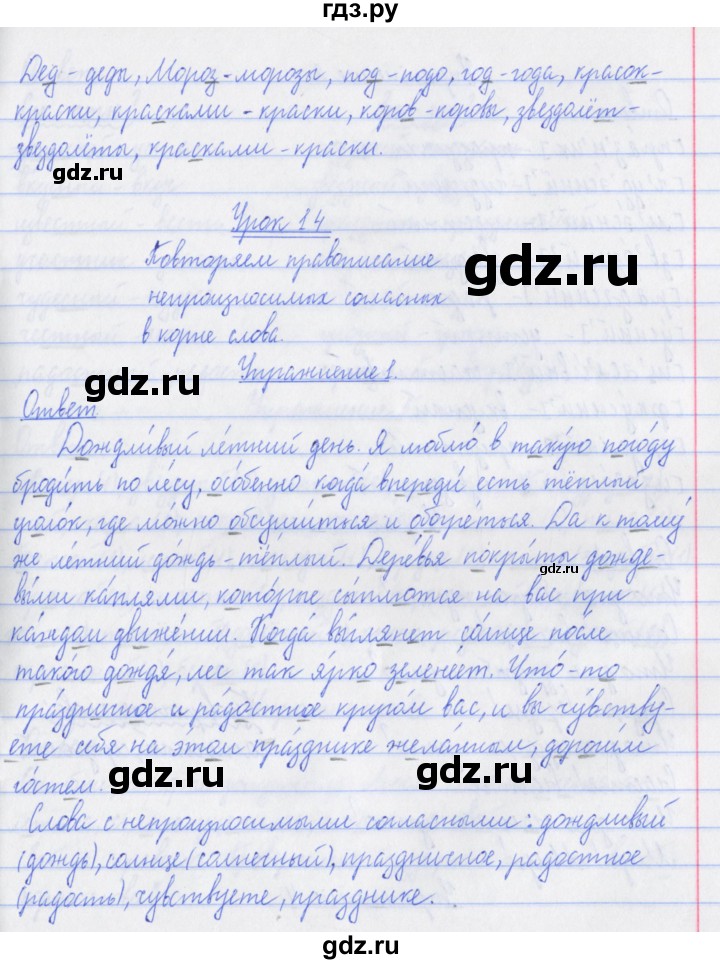 гдз.ру
Дед - деды, Мороз - морозы, под - подо, год - года, красок -
краски, красками - краски, коров - коровы, звездолёт -
звездолёты, красками - краски.
gdz.ru
Урок 14
Повторяем правописание
gdz.ru
непроизносимых согласных
в корне слова.
gdz.ru
Упражнение 1.
Ответ
Дождли́вый ле́тний день. Я люблю́ в таку́ю пого́ду
броди́ть по ле́су, осо́бенно когда́ впереди́ есть тёплый
уголо́к, где мо́жно обсуши́ться и обогре́ться. Да к тому́
же ле́тний до́ждь - тёплый. Дере́вья покры́ты дожде-
gdz.ru
вы́ми ка́плями, кото́рые сы́плются на вас при
ка́ждом движе́нии. Когда́ вы́глянет со́лнце после
тако́го дождя́, лес так я́рко зелене́ет. Что́-то
пра́здничное и ра́достное кругом вас, и вы чу́вству-
ете себя на э́том пра́зднике жела́нным, дороги́м
го́стем.
gdz.ru
gdz.ru
Слова с непроизносимыми согласными: дождливый
(дождь), солнце (солнечный), праздничное, радостное
(радость), чувствуете, празднике.
gdz.ru